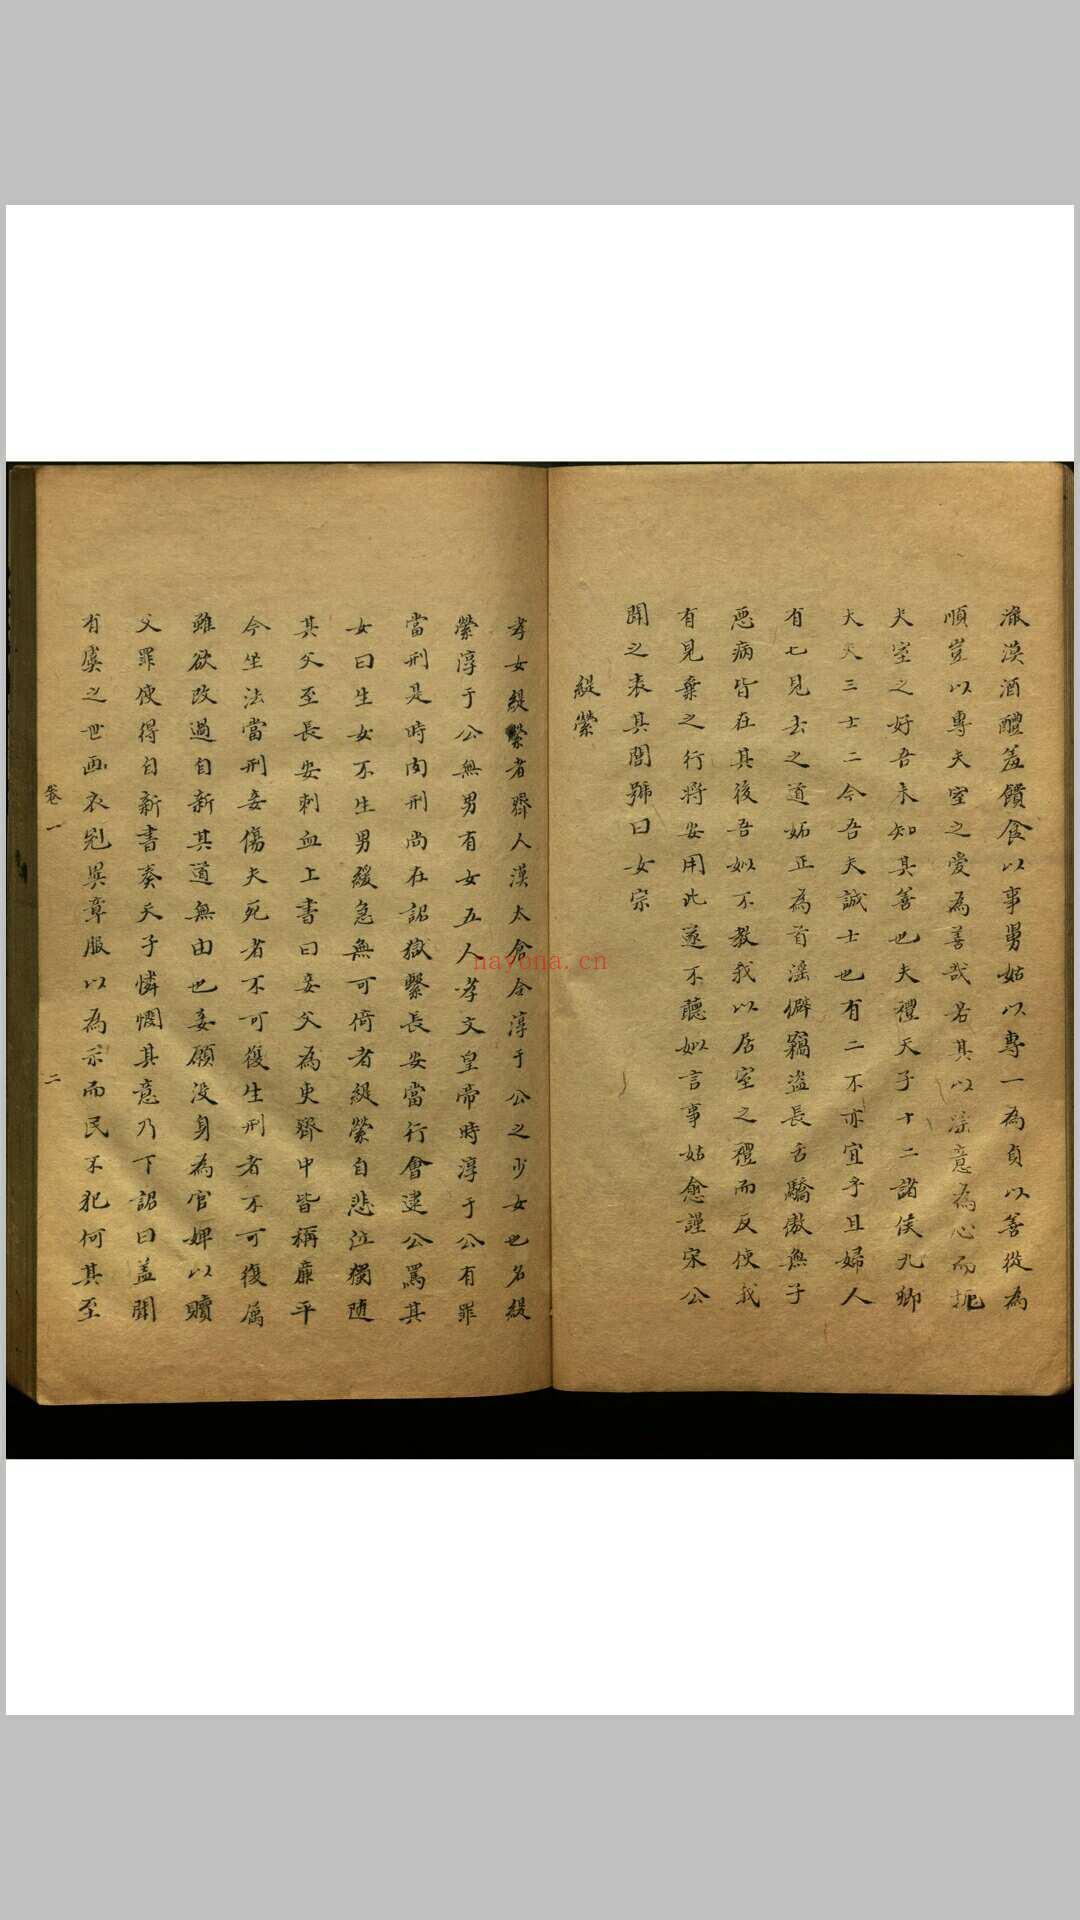 澈漠酒醴羞饋食以事舅姑以專一為貞以善從為
順豈以專夫室之愛為善哉若其以淫意為心而扼
夫室之好吾未知其善也夫禮天子十二諸侯九卿
大夫三士二今吾夫誠士也有二不亦宜乎且婦人
有七見去之道妬正為首淫僻竊盜長舌驕傲無子
惡病皆在其後吾姒不教我以居室之禮而反使我
有見棄之行將安用此遂不聽姒言事姑愈謹宋公
聞之表其閭號曰女宗
緹縈
孝女緹縈者齊人漢太倉令淳于公之少女也名緹
縈淳于公無男有女五人孝文皇帝時淳于公有罪
當刑是時肉刑尚在詔獄繫長安當行會逮公罵其
女曰生女不生男緩急無可倚者緹縈自悲泣獨隨
其父至長安刺血上書曰妾父為吏齊中皆稱廉平
今坐法當刑妾傷夫死者不可復生刑者不可復属
雖欲改過自新其道無由也妾願没身為官婢以贖
父罪使得自新書奏天子憐憫其意乃下詔曰盖聞
有虞之世画衣冠異章服以為示而民不犯何其至
卷一
二
nayona.cn